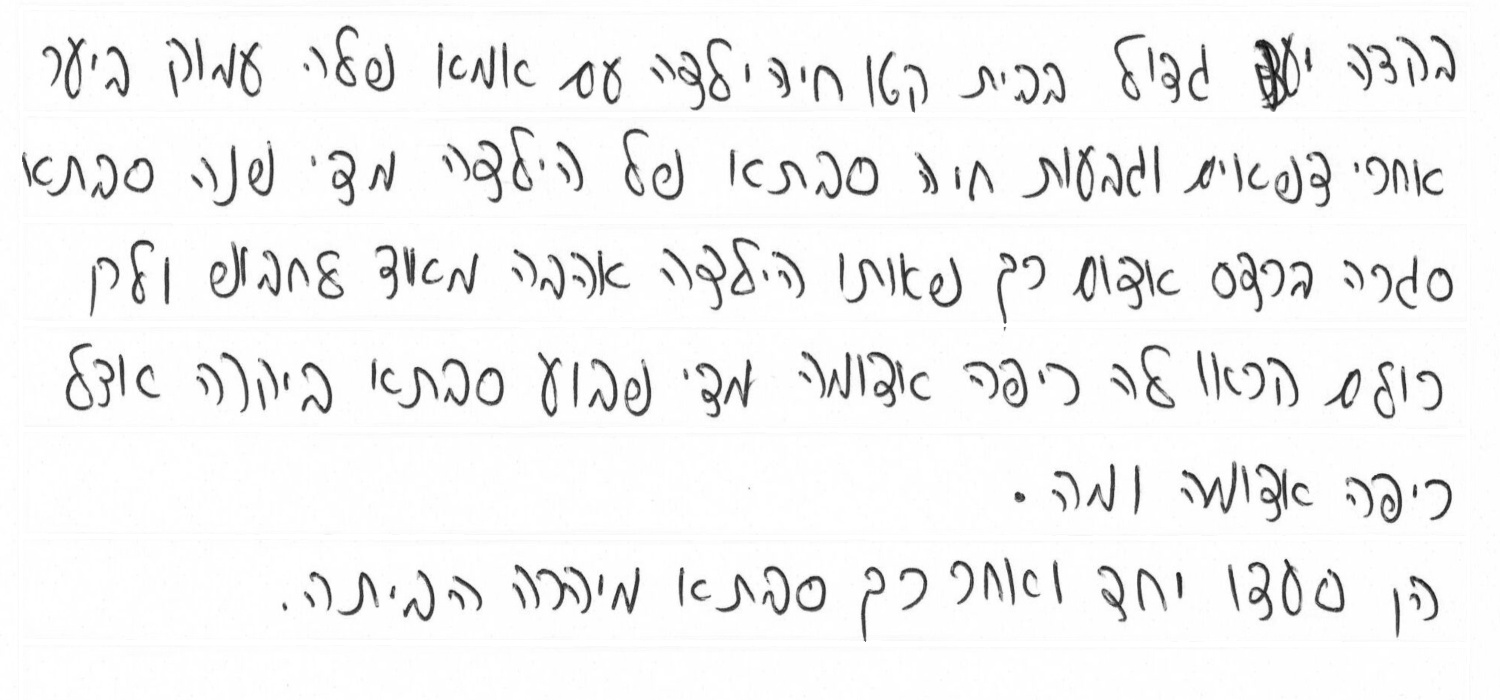 בקצה יער גדול בבית קטן חיה ילדה עם אמא שלה עמוק ביער
אחרי דשאים וגבעות חיה סבתא של הילדה מדי שנה סבתא
סגרה ברדס אדום רך שאותו הילדה אהבה מאוד לחבוש ולכן
כולם קראו לה כיפה אדומה מדי שבוע סבתא ביקרה אצל
כיפה אדומה ומה .
הן סעדו יחד ואחר כך סבתא מיהרה הביתה.